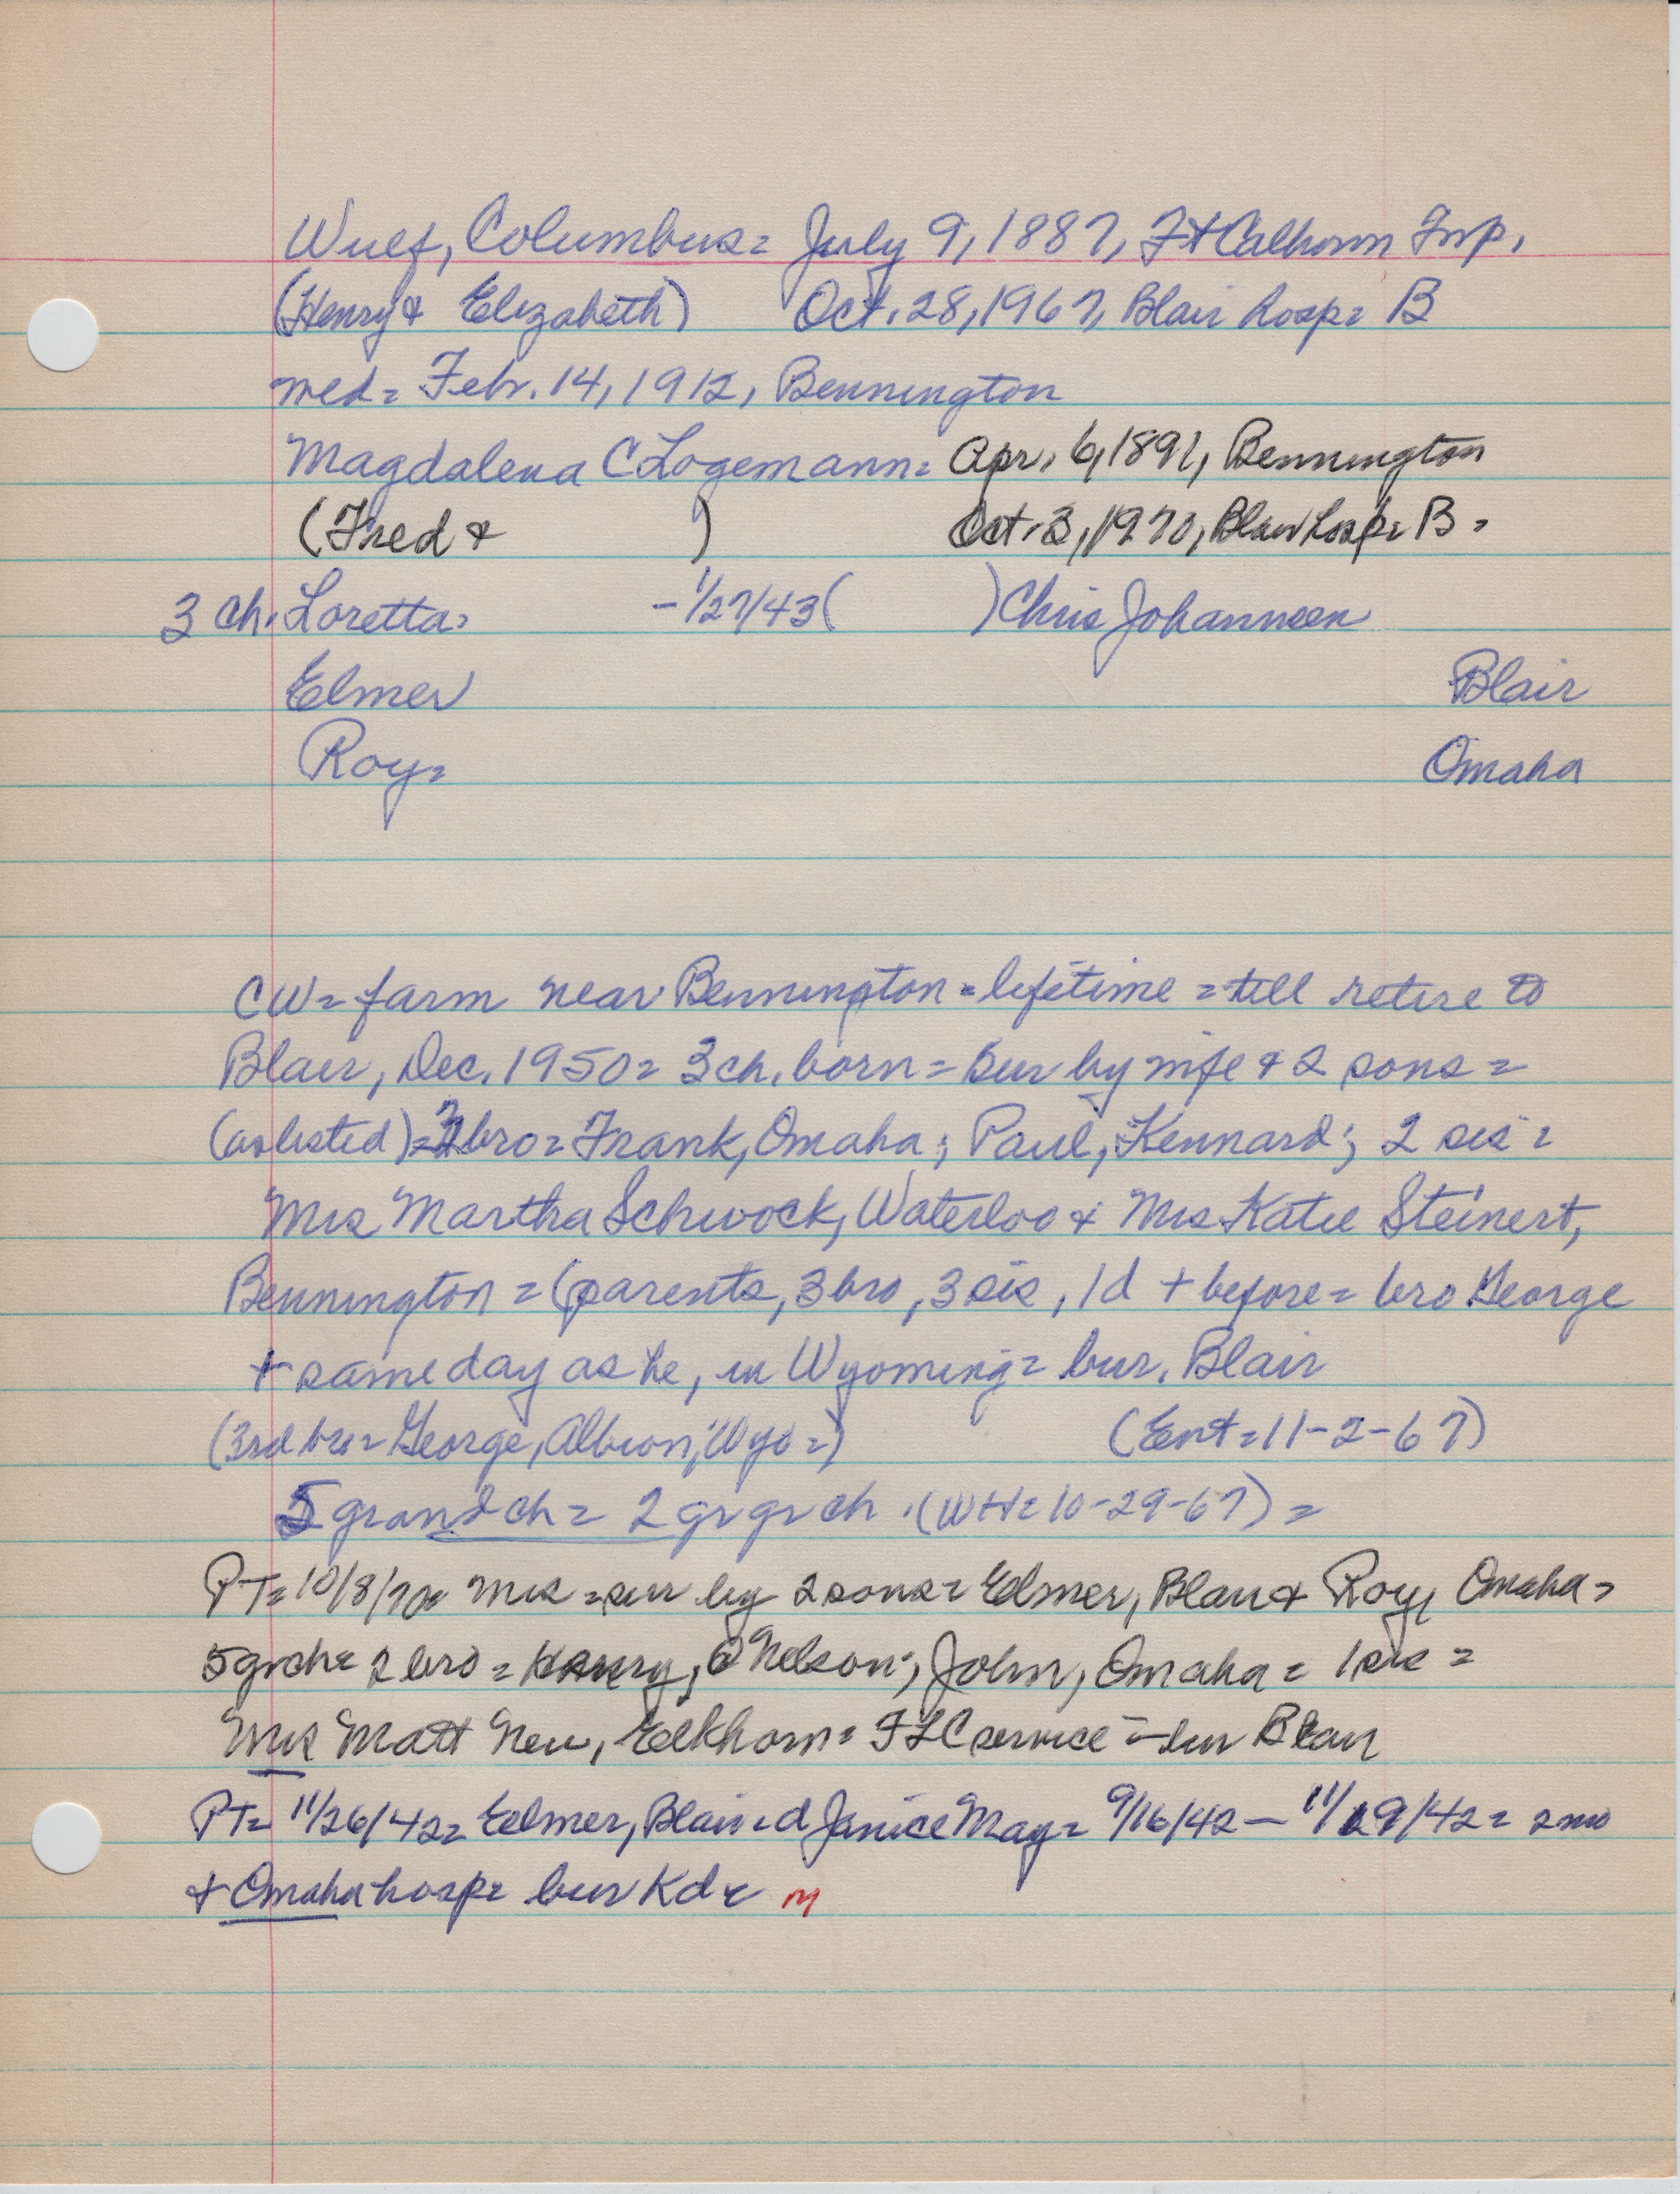 Wulf, Columbus= July 9, 1887, Ft Calhoun Twp.
(Henry & Elizabeth) Oct. 28, 1967, Blair hosp= B
wed= Febr. 14, 1912, Bennington
Magdalena C Logemann= Apr. 6, 1891, Bennington
(Fred & ) Oct. 3, 1970, Blair hosp= B=
3 ch. Loretta= -1/27/43 ( ) Chris Johannsen
Elmer Blair
Roy= Omaha
CW= farm near Bennington=lifetime=till retire to
Blair, Dec. 1950= 3 ch. born= sur by wife & 2 sons=
(as listed)= bro= Frank, Omaha; Paul, Kennard; 2 sis=
Mrs Martha Schwock, Waterloo & Mrs Katie Steinert,
Bennington=(parents, 3 bro, 3 sis, 1 d + before= bro George
+ same day as he, in Wyoming= bur. Blair
(3rd bro= George, Albion, Wyo=) (Ent=11-2-67)
5 grand ch= 2 gr gr ch. (WH= 10-29-67)=
PT= 10/8/70= Mrs= sur by 2 sons= Elmer, Blair & Roy, Omaha=
5 grch= 2 bro= Henry, O'Nelson; John, Omaha= 1 sis=
Mrs Matt Neu, Elkhorn= FLC service= bur Blair
PT= 11/26/42= Elmer, Blair=d Janice May= 9/16/42 — 11/19/42= 2 mo
+ Omaha hosp= bur Kd= M